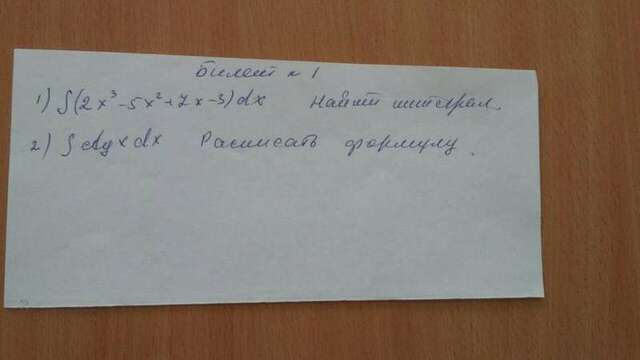 Билет № 1
1) ∫(2x³-5x²+7x-3)dx Найти интеграл.
2) ∫ctgxdx Расписать формулу.